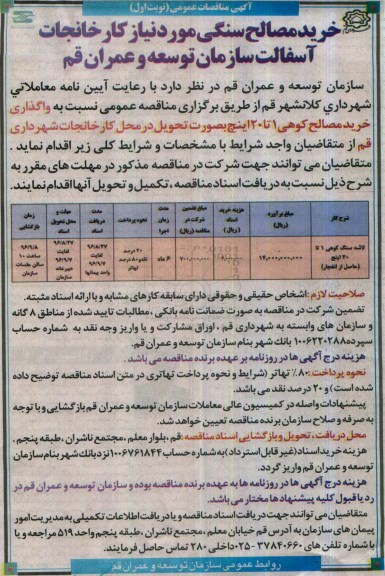 آگهی مناقصات عمومی (نوبت اول)
خرید مصالح سنگی مورد نیاز کارخانجات
آسفالت سازمان توسعه و عمران قم
سازمان توسعه و عمران قم در نظر دارد با رعایت آیین نامه معاملاتی
شهرداری کلانشهر قم از طریق برگزاری مناقصه عمومی نسبت به واگذاری
خرید مصالح کوهی ۱ تا ۲۰ اینچ بصورت تحویل در محل کارخانجات شهرداری
قم از متقاضیان واجد شرایط با مشخصات و شرایط کلی زیر اقدام نماید.
متقاضیان می توانند جهت شرکت در مناقصه مذکور در مهلت های مقرر به
شرح ذیل نسبت به دریافت اسناد مناقصه، تکمیل و تحویل آنها اقدام نمایند.
شرح کار | مبلغ برآورد (ریال) | هزینه خرید اسناد (ریال) | مبلغ تضمین شرکت در مناقصه (ریال) | مدت زمان اجرا | نحوه پرداخت | مدت دریافت اسناد | مهلت و محل تحویل اسناد | زمان بازگشایی
لاشه سنگ کوهی ۱ تا ۲۰ اینچ (حاصل از انفجار) | ۱۴,۰۰۰,۰۰۰,۰۰۰ | ۷۰۰,۰۰۰,۰۰۰ | ۶ ماه | ۲۰ درصد نقد ۸۰ درصد تهاتر | ۹۶/۸/۲۷ لغایت ۹۶/۹/۷ واحد پیمانها | ۹۶/۸/۲۷ لغایت ۹۶/۹/۷ دبیرخانه سازمان | ۹۶/۹/۸ ساعت ۱۰ سالن جلسات سازمان
صلاحیت لازم: اشخاص حقیقی و حقوقی دارای سابقه کارهای مشابه و با ارائه اسناد مثبته.
تضمین شرکت در مناقصه به صورت ضمانت نامه بانکی، مطالبات تایید شده از مناطق ۸ گانه
و سازمان های وابسته به شهرداری قم، اوراق مشارکت و یا واریز وجه نقد به شماره حساب
سپرده ۱۰۰۶۲۲۰۲۸۸ بانک شهر بنام سازمان توسعه و عمران قم.
هزینه درج آگهی ها در روزنامه بر عهده برنده مناقصه می باشد.
نحوه پرداخت: ۸۰٪ تهاتر (شرایط و نحوه پرداخت تهاتری در متن اسناد مناقصه توضیح داده
شده است) و ۲۰ درصد نقد می باشد.
پیشنهادات واصله در کمیسیون عالی معاملات سازمان توسعه و عمران قم بازگشایی و با توجه
به صرفه و صلاح سازمان برنده مناقصه تعیین خواهد شد.
محل دریافت، تحویل و بازگشایی اسناد مناقصه: قم، بلوار معلم، مجتمع ناشران، طبقه پنجم.
هزینه خرید اسناد (غیر قابل استرداد) به شماره حساب ۱۰۰۶۷۶۱۸۴۴ نزد بانک شهر بنام سازمان
توسعه و عمران قم واریز گردد.
هزینه درج آگهی ها در روزنامه ها به عهده برنده مناقصه بوده و سازمان توسعه و عمران قم در
رد یا قبول کلیه پیشنهادها مختار می باشد.
متقاضیان می توانند جهت دریافت اسناد مناقصه و یا دریافت اطلاعات تکمیلی به مدیریت امور
پیمان های سازمان به آدرس قم خیابان معلم، مجتمع ناشران، طبقه پنجم واحد ۵۱۹ مراجعه و یا
با شماره تلفن های ۳۷۸۴۰۶۶۰-۰۲۵ داخلی ۲۸۰ تماس حاصل فرمایند.
روابط عمومی سازمان توسعه و عمران قم